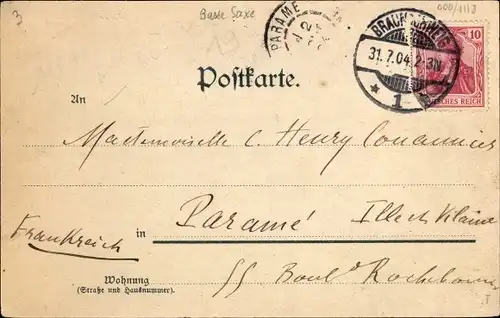 3
Basse Saxe
000/1113
PARAMÉ
BRAUNSCHWEIG
31.7.04.2-3N
* 1
10
DEUTSCHES REICH
Postkarte.
An
Mademoiselle C. Henry
in Paramé Ille et Vilaine
Frankreich
Wohnung
(Straße und Hausnummer).
55 Boul.d